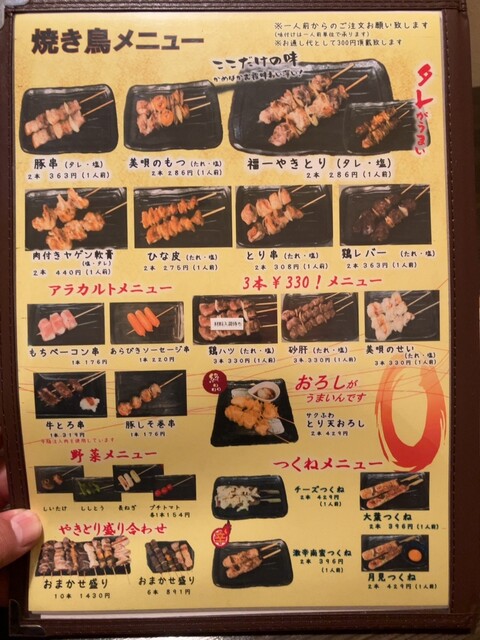 焼き鳥メニュー
※一人前からのご注文お願い致します
(味付けは一人前単位で承ります)
※お通し代として300円頂戴致します
ここだけの味
タレがうまい
豚串(タレ・塩)
2本 363円(1人前)
美唄のもつ(たれ・塩)
2本 286円(1人前)
福一やきとり(タレ・塩)
2本 286円(1人前)
肉付きヤゲン軟膏
(塩・タレ)
2本 440円(1人前)
ひな皮(たれ・塩)
2本 275円(1人前)
とり串(たれ・塩)
2本 308円(1人前)
鶏レバー(たれ・塩)
2本 363円(1人前)
アラカルトメニュー
3本¥330!メニュー
もちベーコン串
1本 176円
あらびきソーセージ串
1本 220円
鶏ハツ(たれ・塩)
3本 330円(1人前)
砂肝(たれ・塩)
3本 330円(1人前)
美唄のせい(たれ・塩)
3本 330円(1人前)
牛とろ串
1本 319円
豚しそ巻串
1本 176円
おろしが
うまいんです
サクふわ
とり天おろし
2本 429円
野菜メニュー
しいたけ
ししとう
長ねぎ
プチトマト
各1本154円
つくねメニュー
チーズつくね
2本 429円
(1人前)
大葉つくね
2本 396円(1人前)
やきとり盛り合わせ
おまかせ盛り
10本 1430円
おまかせ盛り
6本 891円
激辛南蛮つくね
2本 396円
(1人前)
月見つくね
2本 429円(1人前)